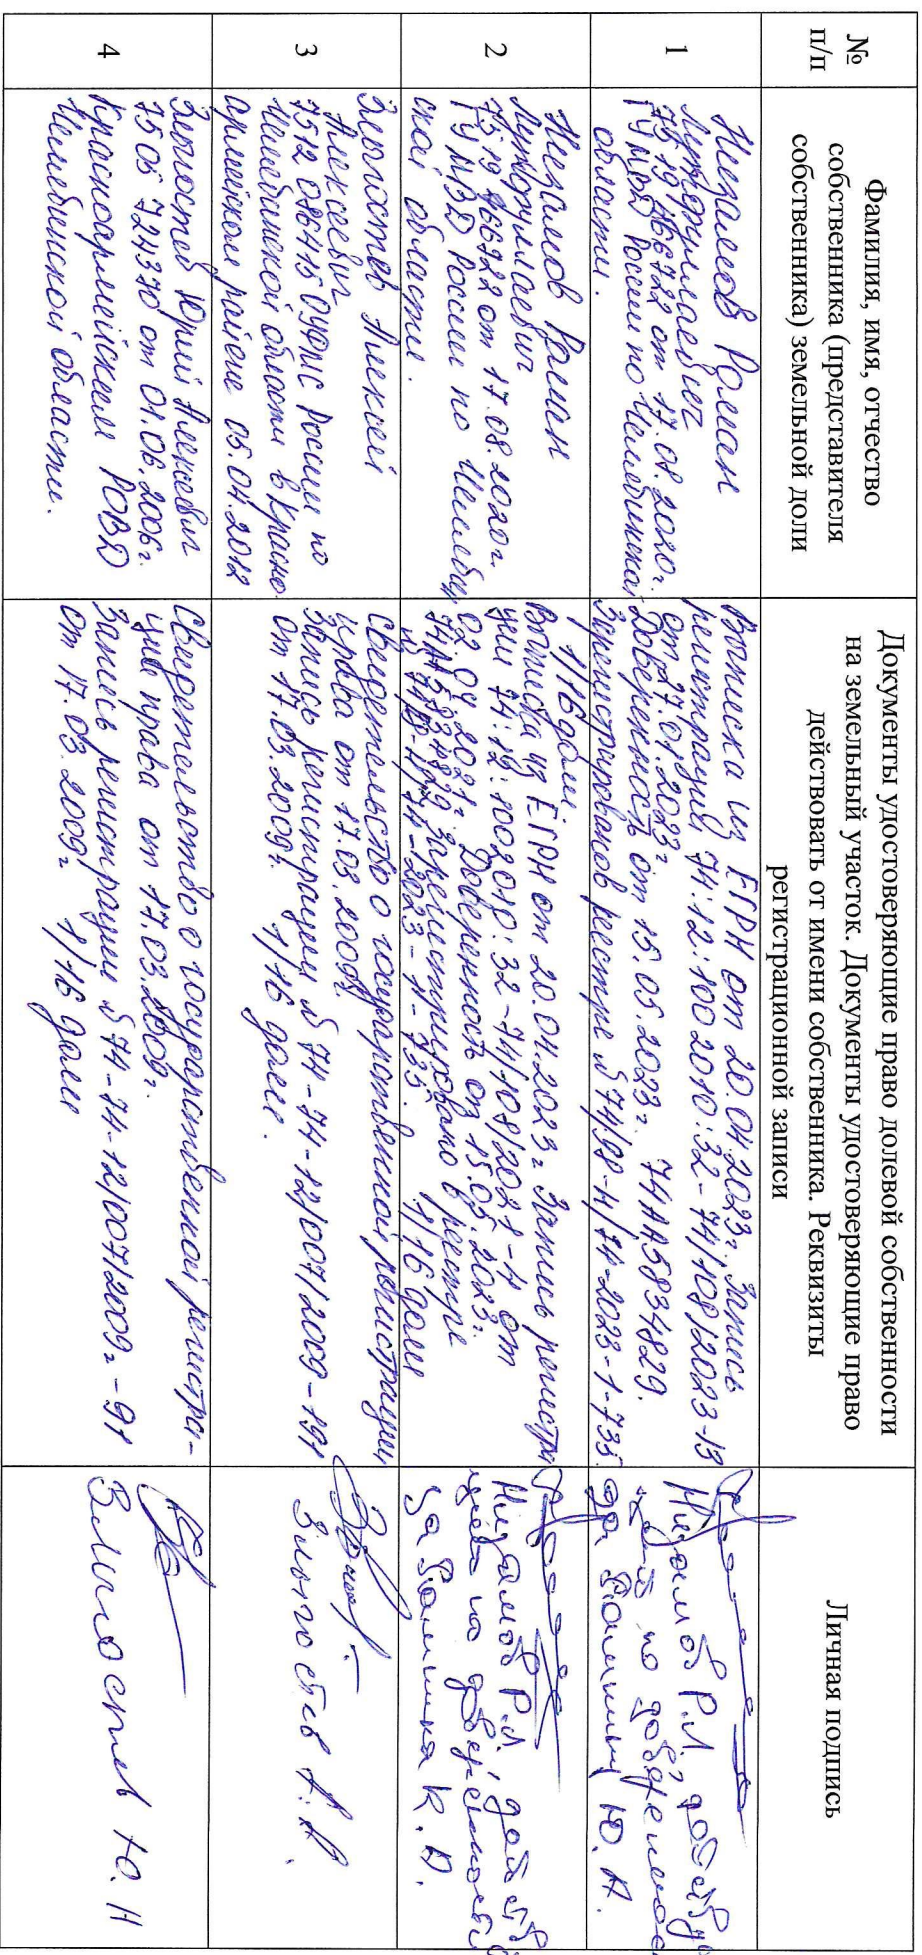 №
п/п
Фамилия, имя, отчество
собственника (представителя
собственника) земельной доли
Документы удостоверяющие право долевой собственности
на земельный участок. Документы удостоверяющие право
действовать от имени собственника. Реквизиты
регистрационной записи
Личная подпись
1
Низамов Роман
Лутфуллаевич
7519 166722 от 17.08.2020г.
ГУ МВД России по Челябинской
области.
Выписка из ЕГРН от 20.04.2023г. Запись
регистрации 74:12:1002010:32-74/108/2023-13
от 27.01.2023г.
Доверенность от 15.05.2023г. 74АА5834829.
Зарегистрировано в реестре №74/98-н/74-2023-1-735.
1/16 доли
Низамов Р.Л. действующий
по доверенности
за Ю.А.
2
Низамов Роман
Лутфуллаевич
7519 166722 от 17.08.2020г.
ГУ МВД России по Челябин
ской области.
Выписка из ЕГРН от 20.04.2023г Запись регистра
ции 74:12:1002010:32-74/108/2021-4 от
02.04.2021г. Доверенность от 15.05.2023г.
74АА5834829 Зарегистрировано в реестре
№74/98-н/74-2023-1-735. 1/16 доли
Низамов Р.Л. действ
ующий по доверенности
за К.А.
3
Злыгостев Алексей
Алексеевич
7512 086415 ОУФМС России по
Челябинской области в Красно
армейском районе 05.04.2012
Свидетельство о государственной регистрации
права от 17.03.2009г.
Запись регистрации №74-74-12/007/2009-191
от 17.03.2009г. 1/16 доли.
Злыгостев А.А.
4
Злыгостев Юрий Алексеевич
7505 724370 от 01.06.2006г.
Красноармейским РОВД
Челябинской области.
Свидетельство о государственной регистра-
ции права от 17.03.2009г.
Запись регистрации №74-74-12/007/2009г-91
от 17.03.2009г. 1/16 доли
Злыгостев Ю.А